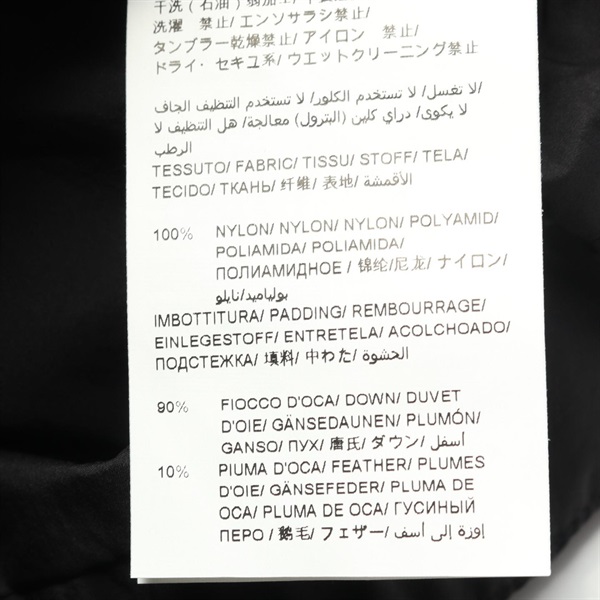 干洗（石油）弱加工/
洗濯 禁止/ エンソサラシ禁止/
タンブラー乾燥禁止/ アイロン 禁止/
ドライ・セキユ系/ ウエットクリーニング禁止
لا تغسل/ لا تستخدم الكلور/ لا تستخدم التنظيف الجاف/
لا يكوى/ دراي كلين (البترول) معالجة/ هل التنظيف لا
الرطب
TESSUTO/ FABRIC/ TISSU/ STOFF/ TELA/
TECIDO/ ТКАНЬ/ 纤维/ 表地/ الأقمشة/
100% NYLON/ NYLON/ NYLON/ POLYAMID/
POLIAMIDA/ POLIAMIDA/
ПОЛИАМИДНОЕ / 锦纶/尼龙/ ナイロン/
بولياميد/نايلو
IMBOTTITURA/ PADDING/ REMBOURRAGE/
EINLEGESTOFF/ ENTRETELA/ ACOLCHOADO/
ПОДСТЕЖКА/ 填料/ 中わた/ الحشوة/
90% FIOCCO D'OCA/ DOWN/ DUVET
D'OIE/ GÄNSEDAUNEN/ PLUMÓN/
GANSO/ ПУХ/ 唐氏/ ダウン/ أسفل/
10% PIUMA D'OCA/ FEATHER/ PLUMES
D'OIE/ GÄNSEFEDER/ PLUMA DE
OCA/ PLUMA DE OCA/ ГУСИНЫЙ
ПЕРО / 鹅毛/ フェザー/ إوزة إلى أسف/